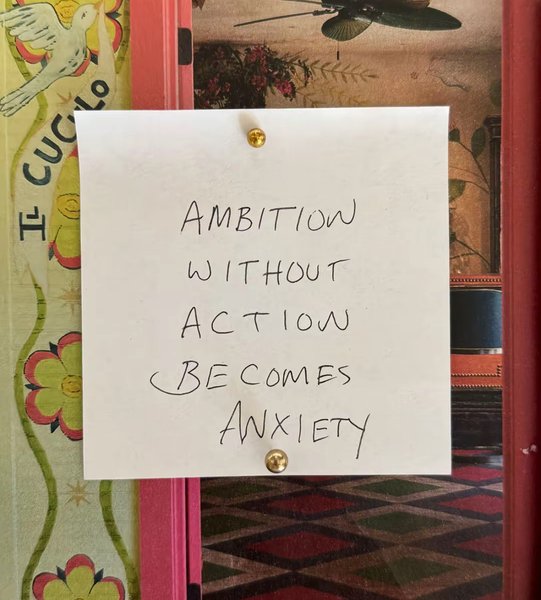 IL CUCULO
AMBITION
WITHOUT
ACTION
BECOMES
ANXIETY